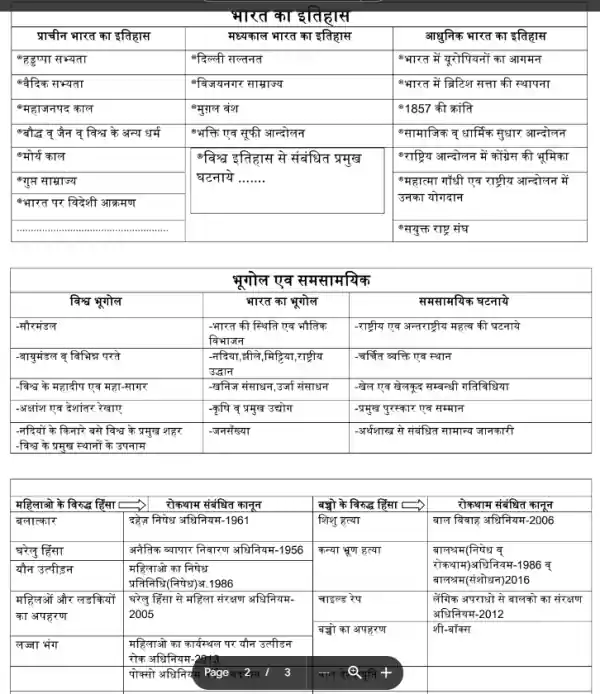 भारत का इतिहास
प्राचीन भारत का इतिहास मध्यकाल भारत का इतिहास आधुनिक भारत का इतिहास
*हड्डप्पा सभ्यता *दिल्ली सल्तनत *भारत में यूरोपियनों का आगमन
*वैदिक सभ्यता *विजयनगर साम्राज्य *भारत में ब्रिटिश सत्ता की स्थापना
*महाजनपद काल *मुग़ल वंश *1857 की क्रांति
*बौद्ध व् जैन व् विश्व के अन्य धर्म *भक्ति एव सूफी आन्दोलन *सामाजिक व् धार्मिक सुधार आन्दोलन
*मोर्य काल *विश्व इतिहास से संबंधित प्रमुख *राष्ट्रिय आन्दोलन में कोंग्रेस की भूमिका
*गुप्त साम्राज्य घटनाये ....... *महात्मा गाँधी एव राष्ट्रीय आन्दोलन में
*भारत पर विदेशी आक्रमण उनका योगदान
.................................................... *सयुक्त राष्ट्र संघ
भूगोल एव समसामयिक
विश्व भूगोल भारत का भूगोल समसामयिक घटनाये
-सौरमंडल -भारत की स्थिति एव भौतिक -राष्ट्रीय एव अन्तराष्ट्रीय महत्व की घटनाये
विभाजन
-वायुमंडल व् विभिन्न परते -नदिया,झीले,मिट्टिया,राष्ट्रीय -चर्चित व्यक्ति एव स्थान
उद्धान
-विश्व के महादीप एव महा-सागर -खनिज संसाधन,उर्जा संसाधन -खेल एव खेलकूद सम्बन्धी गतिविधिया
-अक्षांश एव देशांतर रेखाए -कृषि व् प्रमुख उद्योग -प्रमुख पुरस्कार एव सम्मान
-नदियों के किनारे बसे विश्व के प्रमुख शहर -जनसँख्या -अर्थशास्त्र से संबंधित सामान्य जानकारी
-विश्व के प्रमुख स्थानों के उपनाम
महिलाओ के विरुद्ध हिंसा रोकथाम संबंधित कानून बच्चो के विरुद्ध हिंसा रोकथाम संबंधित कानून
बलात्कार दहेज़ निषेध अधिनियम-1961 शिशु हत्या बाल विवाह अधिनियम-2006
घरेलु हिंसा अनैतिक व्यापार निवारण अधिनियम-1956 कन्या भ्रूण हत्या बालश्रम(निषेध व्
यौन उत्पीड़न महिलाओ का निषेध रोकथाम)अधिनियम-1986 व्
प्रतिनिधि(निषेध)अ.1986 बालश्रम(संशोधन)2016
महिलओं और लडकियों घरेलु हिंसा से महिला संरक्षण अधिनियम- चाइल्ड रेप लेंगिक अपराधो से बालको का संरक्षण
का अपहरण 2005 अधिनियम-2012
बच्चो का अपहरण शी-बॉक्स
लज्जा भंग महिलाओ का कार्यस्थल पर यौन उत्पीडन
रोक अधिनियम-2013
पोक्सो अधिनियम
Page 2 / 3